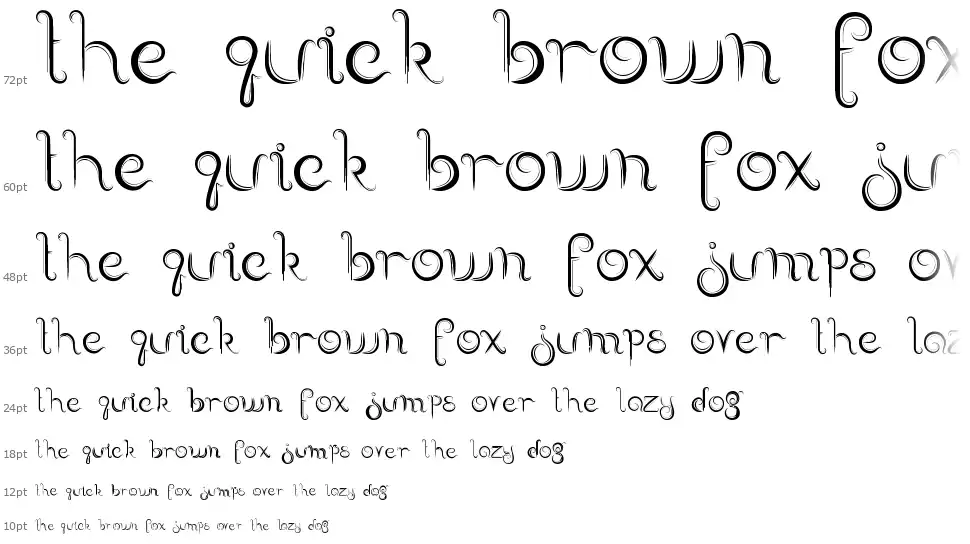 72pt the quick brown fox
60pt the quick brown fox ju
48pt the quick brown fox jumps ov
36pt the quick brown fox jumps over the la
24pt the quick brown fox jumps over the lazy dog
18pt the quick brown fox jumps over the lazy dog
12pt the quick brown fox jumps over the lazy dog
10pt the quick brown fox jumps over the lazy dog